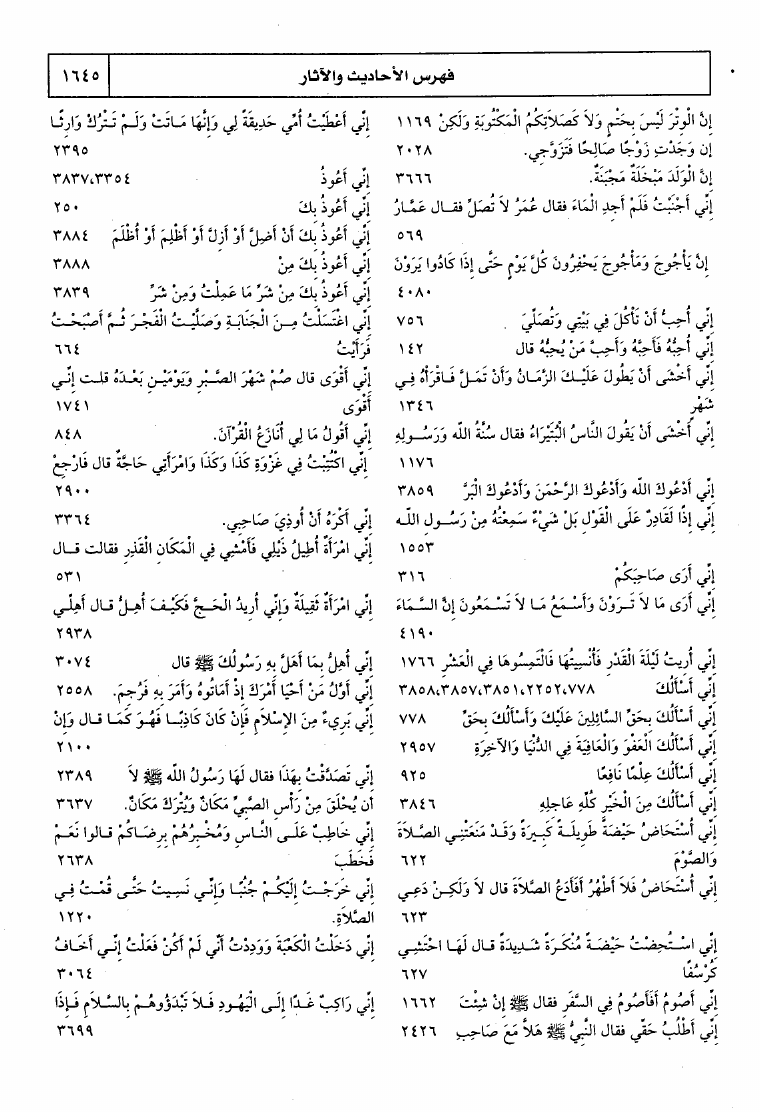 فهرس الأحاديث والآثار
١٦٤٥
إِنَّ الْوِتْرَ لَيْسَ بِحَتْمٍ وَلاَ كَصَلاَتِكُمُ الْمَكْتُوبَةِ وَلَكِنْ ١١٦٩
إن وَجَدْتِ زَوْجًا صَالِحًا فَتَزَوَّجِي. ٢٠٢٨
إِنَّ الْوَلَدَ مَبْخَلَةٌ مَجْبَنَةٌ. ٣٦٦٦
إِنِّي أَجْنَبْتُ فَلَمْ أَجِدِ الْمَاءَ فقال عُمَرُ لاَ تُصَلِّ فقال عَمَّارُ
٥٦٩
إِنَّ يَأْجُوجَ وَمَأْجُوجَ يَحْفِرُونَ كُلَّ يَوْمٍ حَتَّى إِذَا كَادُوا يَرَوْنَ
٤٠٨٠
إِنِّي أُحِبُّ أَنْ تَأْكُلَ فِي بَيْتِي وَتُصَلِّيَ ٧٥٦
إِنِّي أُحِبُّهُ فَأَحِبَّهُ وَأَحِبَّ مَنْ يُحِبُّهُ قال ١٤٢
إِنِّي أَخْشَى أَنْ يَطُولَ عَلَيْكَ الزَّمَانُ وَأَنْ تَمَلَّ فَاقْرَأْهُ فِي
شَهْرٍ ١٣٤٦
إِنِّي أَخْشَى أَنْ يَقُولَ النَّاسُ الْبُتَيْرَاءُ فقال سُنَّةُ الله وَرَسُولِهِ
١١٧٦
إِنِّي أَدْعُوكَ الله وَأَدْعُوكَ الرَّحْمَنَ وَأَدْعُوكَ الْبَرَّ ٣٨٥٩
إِنِّي إِذًا لَقَادِرٌ عَلَى الْقَوْلِ بَلْ شَيْءٌ سَمِعْتُهُ مِنْ رَسُولِ الله
١٥٥٣
إِنِّي أَرَى صَاحِبَكُمْ ٣١٦
إِنِّي أَرَى مَا لاَ تَرَوْنَ وَأَسْمَعُ مَا لاَ تَسْمَعُونَ إِنَّ السَّمَاءَ
٤١٩٠
إِنِّي أُرِيتُ لَيْلَةَ الْقَدْرِ فَأُنْسِيتُهَا فَالْتَمِسُوهَا فِي الْعَشْرِ ١٧٦٦
إِنِّي أَسْأَلُكَ ٧٧٨، ٢٢٥٢، ٣٨٥١، ٣٨٥٧، ٣٨٥٨
إِنِّي أَسْأَلُكَ بِحَقِّ السَّائِلِينَ عَلَيْكَ وَأَسْأَلُكَ بِحَقِّ ٧٧٨
إِنِّي أَسْأَلُكَ الْعَفْوَ وَالْعَافِيَةَ فِي الدُّنْيَا وَالآخِرَةِ ٢٩٥٧
إِنِّي أَسْأَلُكَ عِلْمًا نَافِعًا ٩٢٥
إِنِّي أَسْأَلُكَ مِنَ الْخَيْرِ كُلِّهِ عَاجِلِهِ ٣٨٤٦
إِنِّي أُسْتَحَاضُ حَيْضَةً طَوِيلَةً كَبِيرَةً وَقَدْ مَنَعَتْنِي الصَّلاَةَ
وَالصَّوْمَ ٦٢٢
إِنِّي أُسْتَحَاضُ فَلاَ أَطْهُرُ أَفَأَدَعُ الصَّلاَةَ قال لاَ وَلَكِنْ دَعِي
٦٢٣
إِنِّي اسْتُحِضْتُ حَيْضَةً مُنْكَرَةً شَدِيدَةً قال لَهَا احْتَشِي
كُرْسُفًا ٦٢٧
إِنِّي أَصُومُ أَفَأَصُومُ فِي السَّفَرِ فقال ﷺ إِنْ شِئْتَ ١٦٦٢
إِنِّي أَطْلُبُ حَقِّي فقال النَّبِيُّ ﷺ هَلاَّ مَعَ صَاحِبِ ٢٤٢٦
إِنِّي أَعْطَيْتُ أُمِّي حَدِيقَةً لِي وَإِنَّهَا مَاتَتْ وَلَمْ تَتْرُكْ وَارِثًا
٢٣٩٥
إِنِّي أَعُوذُ ٣٣٥٤، ٣٨٣٧
إِنِّي أَعُوذُ بِكَ ٢٥٠
إِنِّي أَعُوذُ بِكَ أَنْ أَضِلَّ أَوْ أَزِلَّ أَوْ أَظْلِمَ أَوْ أُظْلَمَ ٣٨٨٤
إِنِّي أَعُوذُ بِكَ مِنْ ٣٨٨٨
إِنِّي أَعُوذُ بِكَ مِنْ شَرِّ مَا عَمِلْتُ وَمِنْ شَرِّ ٣٨٣٩
إِنِّي اغْتَسَلْتُ مِنَ الْجَنَابَةِ وَصَلَّيْتُ الْفَجْرَ ثُمَّ أَصْبَحْتُ
فَرَأَيْتُ ٦٦٤
إِنِّي أَقْوَى قال صُمْ شَهْرَ الصَّبْرِ وَيَوْمَيْنِ بَعْدَهُ قلت إِنِّي
أَقْوَى ١٧٤١
إِنِّي أَقُولُ مَا لِي أُنَازَعُ الْقُرْآنَ. ٨٤٨
إِنِّي اكْتُتِبْتُ فِي غَزْوَةِ كَذَا وَكَذَا وَامْرَأَتِي حَاجَّةٌ قال فَارْجِعْ
٢٩٠٠
إِنِّي أَكْرَهُ أَنْ أُوذِيَ صَاحِبِي. ٣٣٦٤
إِنِّي امْرَأَةٌ أُطِيلُ ذَيْلِي فَأَمْشِي فِي الْمَكَانِ الْقَذِرِ فقالت قال
٥٣١
إِنِّي امْرَأَةٌ ثَقِيلَةٌ وَإِنِّي أُرِيدُ الْحَجَّ فَكَيْفَ أُهِلُّ قال أَهِلِّي
٢٩٣٨
إِنِّي أُهِلُّ بِمَا أَهَلَّ بِهِ رَسُولُكَ ﷺ قال ٣٠٧٤
إِنِّي أَوَّلُ مَنْ أَحْيَا أَمْرَكَ إِذْ أَمَاتُوهُ وَأَمَرَ بِهِ فَرُجِمَ. ٢٥٥٨
إِنِّي بَرِيءٌ مِنَ الإِسْلاَمِ فَإِنْ كَانَ كَاذِبًا فَهُوَ كَمَا قال وَإِنْ
٢١٠٠
إِنِّي تَصَدَّقْتُ بِهَذَا فقال لَهَا رَسُولُ الله ﷺ لاَ ٢٣٨٩
أن يُحْلَقَ مِنْ رَأْسِ الصَّبِيِّ مَكَانٌ وَيُتْرَكَ مَكَانٌ. ٣٦٣٧
إِنِّي خَاطِبٌ عَلَى النَّاسِ وَمُخْبِرُهُمْ بِرِضَاكُمْ قالوا نَعَمْ
فَخَطَبَ ٢٦٣٨
إِنِّي خَرَجْتُ إِلَيْكُمْ جُنُبًا وَإِنِّي نَسِيتُ حَتَّى قُمْتُ فِي
الصَّلاَةِ. ١٢٢٠
إِنِّي دَخَلْتُ الْكَعْبَةَ وَوَدِدْتُ أَنِّي لَمْ أَكُنْ فَعَلْتُ إِنِّي أَخَافُ
٣٠٦٤
إِنِّي رَاكِبٌ غَدًا إِلَى الْيَهُودِ فَلاَ تَبْدَؤُوهُمْ بِالسَّلاَمِ فَإِذَا
٣٦٩٩